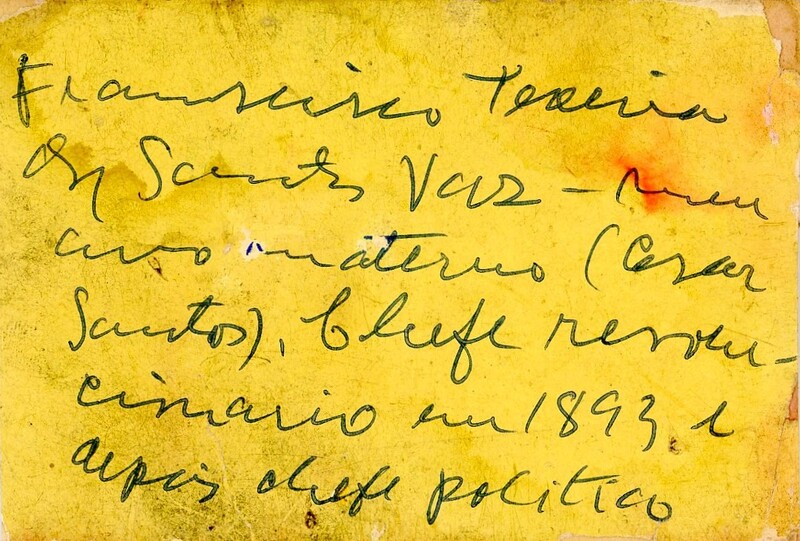 Francisco Texeira
dos Santos Vaz - meu
avo materno (Cesar
Santos), Chefe revolu-
cionario em 1893 e
depois chefe politico